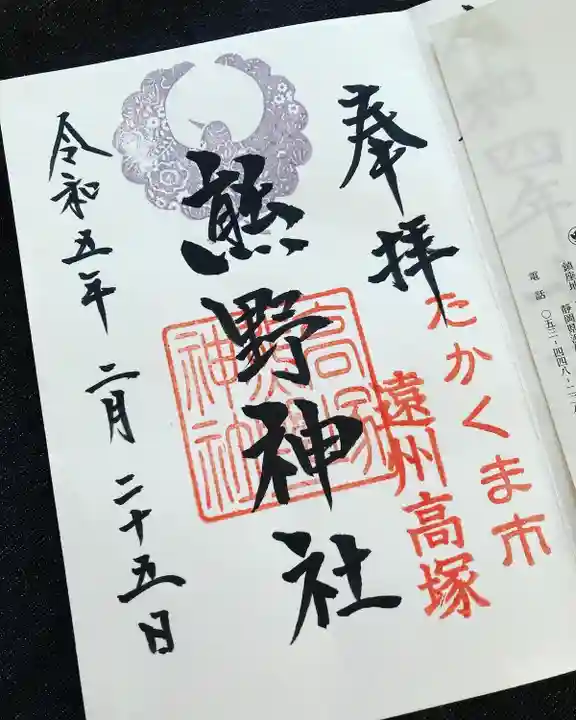 奉拝
たかくま市
遠州高塚
熊野神社
高塚熊野神社
令和五年二月二十五日
鎮座地 静岡県
電話 〇五三・四四八・